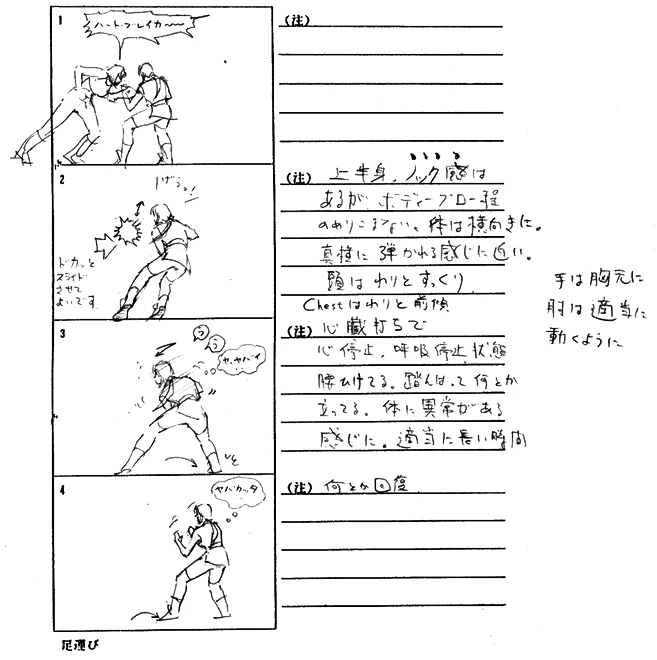 1
ハートブレイカ〜〜
(注)
2
ドカッと
スライド
させて
よいです。
(注) 上半身、ノック感は
あるが、ボディーブロー程
のめりこまない。体は横向きに。
真横に弾かれる感じに近い。
頭はわりとすっくり
Chestはわりと前傾
手は胸元に
肘は適当に
動くように
3
うう
ヤ、ヤバイ
(注) 心臓打ちで
心停止、呼吸停止状態
腰ひけてる。踏んばって何とか
立ってる。体に異常がある
感じに。適当に長い時間
4
ヤバカッタ
(注) 何とか回復
足運び